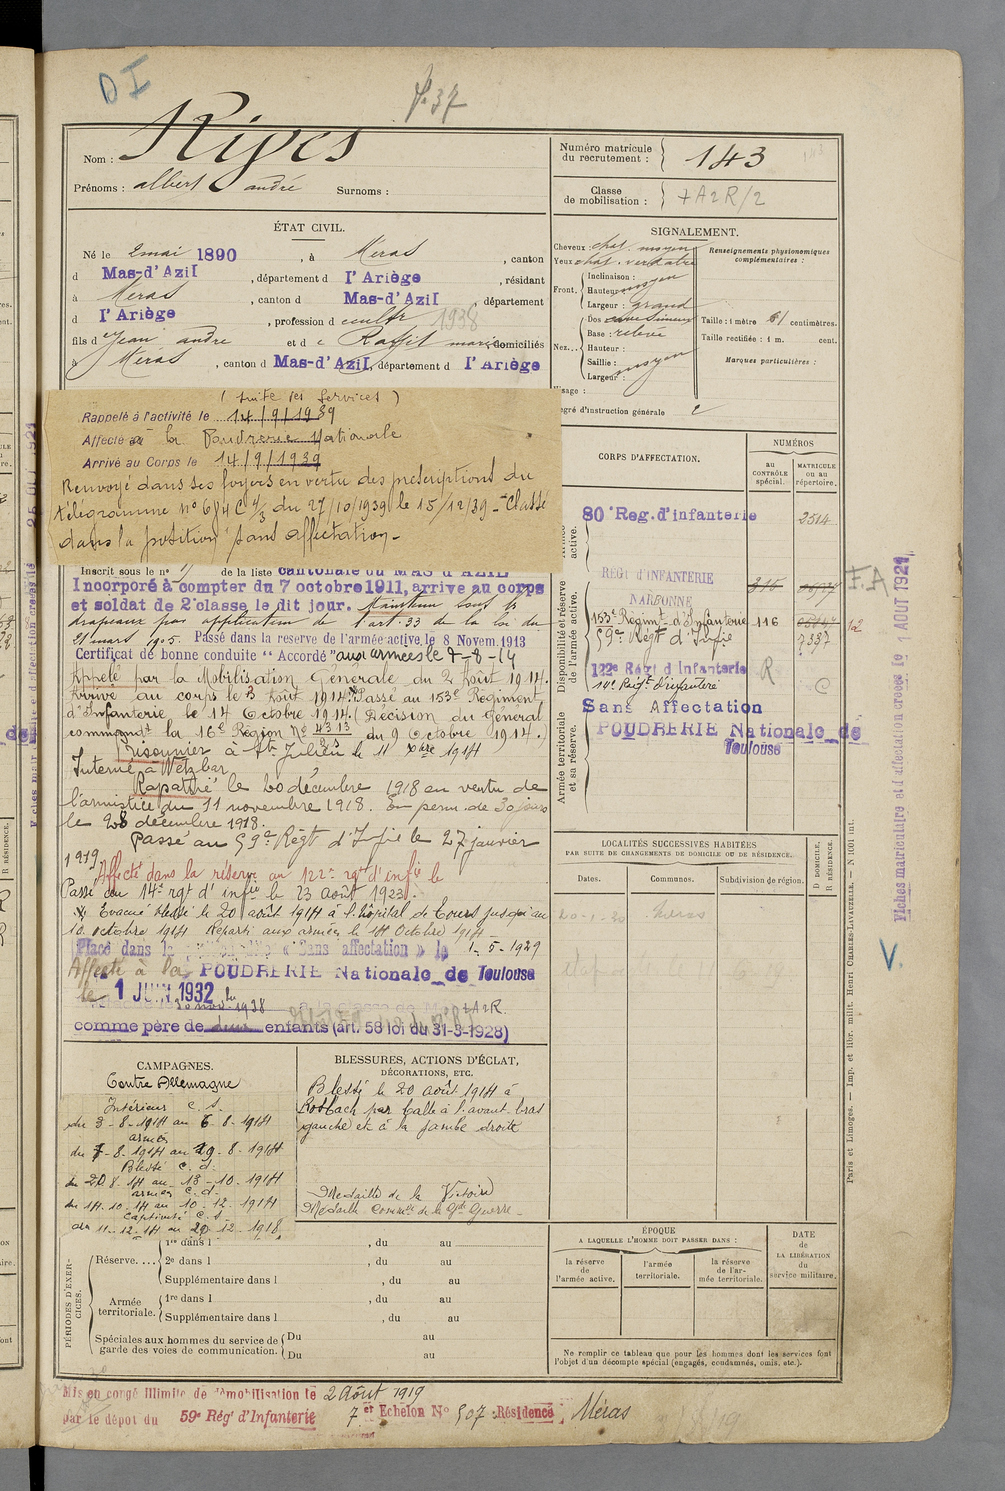 D I
f. 37
Nom : Rives
Prénoms : albert andré Surnoms :
Numéro matricule
du recrutement : 143
Classe
de mobilisation : + A2R/2
ÉTAT CIVIL.
Né le 2 mai 1890 , à Méras , canton
d Mas-d'Azil , département d l'Ariège , résidant
à Méras , canton d Mas-d'Azil , département
d l'Ariège , profession d cultr 1938
fils d Jean andré et d e Raffit mariés domiciliés
à Méras , canton d Mas-d'Azil, département d l'Ariège
SIGNALEMENT.
Cheveux : chat. moyen
Yeux chat. verdatre
Front. Inclinaison :
Hauteur moyen
Largeur : grand
Nez... Dos
Base : relevée
Hauteur :
Saillie : moyen
Largeur :
Visage :
Degré d'instruction générale 2
Renseignements physionomiques
complémentaires :
Taille : 1 mètre 61 centimètres.
Taille rectifiée : 1 m. cent.
Marques particulières :
( suite des services )
Rappelé à l'activité le 14/9/1939
Affecté à la Poudrerie Nationale
Arrivé au Corps le 14/9/1939
Renvoyé dans ses foyers en vertu des prescriptions du
télégramme n° 684 C 4/3 du 27/10/1939 le 15/12/39 - Classé
dans la position sans affectation -
Inscrit sous le n° de la liste cantonale du MAS D'AZIL
Incorporé à compter du 7 octobre 1911, arrive au corps
et soldat de 2e classe le dit jour. Maintenu sous les
drapeaux par application de l'art. 33 de la loi du
21 mars 1905. Passé dans la reserve de l'armée active, le 8 Novem. 1913
Certificat de bonne conduite "Accordé" aux armées le 7-8-14
Appelé par la Mobilisation Générale du 2 Août 1914.
Arrivé au corps le 3 Août 1914. Passé au 153e Régiment
d'Infanterie le 14 Octobre 1914 (Décision du Général
commandt la 16e Région No 4313 du 9 Octobre 1914.)
Prisonnier à St Julien le 11 Xbre 1914
Interné à Wetzlar
Rapatrié le 20 décembre 1918 en vertu de
l'armistice du 11 novembre 1918. En perm. de 30 jours
le 28 décembre 1918.
Passé au 59e Régt d'Infie le 27 janvier
1919
Affecté dans la réserve au 122e rgt d'infie le
Passé au 14e rgt d'infie le 23 août 1923
Evacué blessé le 20 août 1914 à l'hôpital de Tours jusqu'au
10 octobre 1914 Reparti aux armées le 14 Octobre 1914
Placé dans la "Sans affectation" le 1-5-1929
Affecté à la POUDRERIE Nationale de Toulouse
le 1 JUIN 1932
30 novbre 1938 à la classe de Mob +A2R.
comme père de deux enfants (art. 58 loi du 31-3-1928)
CORPS D'AFFECTATION.
NUMÉROS
au
CONTRÔLE
spécial.
MATRICULE
ou au
répertoire.
Disponibilité et réserve
de l'armée active.
Armée territoriale
et sa réserve.
80e Reg. d'infanterie 2514
REGt d'INFANTERIE
NARBONNE
153e Régimt d'Infanterie 116
59e Régt d'Infie
122e Régt d'Infanterie R
14e Régt d'infanterie C
Sans Affectation
POUDRERIE Nationale de
Toulouse
F.A
Fiches matriculaire et d'affectation créées le 1 AOUT 1921
V.
LOCALITÉS SUCCESSIVES HABITÉES
PAR SUITE DE CHANGEMENTS DE DOMICILE OU DE RÉSIDENCE.
Dates. Communes. Subdivision de région.
D DOMICILE,
R RÉSIDENCE.
20-1-20 Méras
CAMPAGNES.
Contre Allemagne
Intérieur C. S.
du 3-8-1914 au 6-8-1914
armées
du 7-8-1914 au 19-8-1914
Blessé C. d.
du 20 8 14 au 13-10-1914
armées C. d.
du 14-10-14 au 10-12-1914
Captivité C. S.
du 11-12-14 au 20-12-1918
BLESSURES, ACTIONS D'ÉCLAT,
DÉCORATIONS, ETC.
Blessé le 20 août 1914 à
Rosbach par balle à l'avant bras
gauche et à la jambe droite
Médaille de la Victoire
Médaille Commve de la Gde Guerre -
PÉRIODES D'EXERCICES.
Réserve.... 1re dans l , du au
2e dans l , du au
Supplémentaire dans l , du au
Armée
territoriale. 1re dans l , du au
Supplémentaire dans l , du au
Spéciales aux hommes du service de
garde des voies de communication. Du au
Du au
ÉPOQUE
A LAQUELLE L'HOMME DOIT PASSER DANS :
la réserve
de
l'armée active.
l'armée
territoriale.
la réserve
de l'armée
territoriale.
DATE
de
LA LIBÉRATION
du
service militaire.
Ne remplir ce tableau que pour les hommes dont les services font
l'objet d'un décompte spécial (engagés, condamnés, omis, etc.).
Paris et Limoges. — Imp. et libr. milit. Henri CHARLES-LAVAUZELLE. — N 1001 int.
Mis en congé illimité de démobilisation le 2 Août 1919
par le dépot du 59e Rég' d'Infanterie 7er Echelon No 507 Résidence Méras